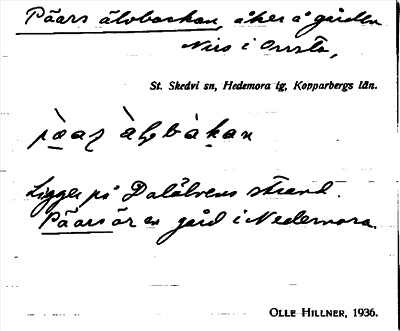 Päars älvbackan, åker å gården
Nirs i Orrsta,
St. Skedvi sn, Hedemora tg, Kopparbergs län.
Ligger på Dalälvens strand.
Päars är en gård i Nedernora.
OLLE HILLNER, 1936.